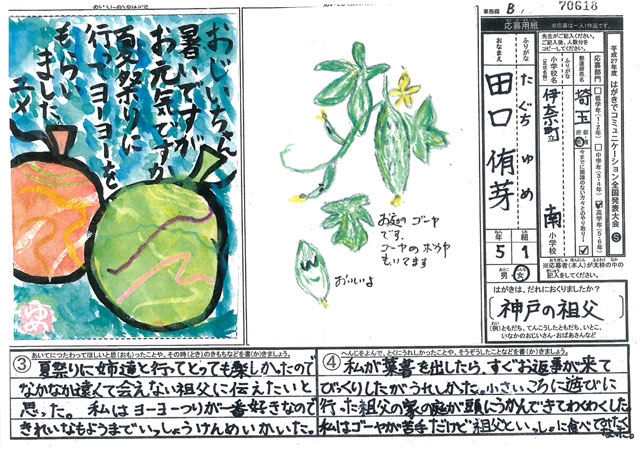 事務欄 B
70618
おじいちゃん
暑いですが
お元気ですか
夏祭りに
行ってヨーヨーを
もらい
ました。
ユメ
お庭のゴーヤ
です。
ゴーヤのホウヤ
もいてます
おいしいよ
平成27年度 はがきでコミュニケーション全国発表大会 S
応募用紙
※応募は一人1作品です。
先生がご記入ください。
ご記入後、人数分を
コピーしてください。
応募部門
低学年(1・2年)
中学年(3・4年)
高学年(5・6年)
都道府県名
埼玉
小学校名
ふりがな
伊奈町立 南 小学校
※応募者(本人)が太枠の中を
記入してください。
ふりがな
たぐち ゆめ
おなまえ
田口 侑芽
5年 1組
男 女
はがきは、だれにおくりましたか?
神戸の祖父
(例)ともだち、てんこうしたともだち、いとこ、
いなかのおじいさん・おばあさんなど
③ あいてにつたわってほしいと思(おも)ったことや、その時(とき)のきもちなどを書(か)きましょう。
夏祭りに姉達と行ってとっても楽しかったので
なかなか遠くて会えない祖父に伝えたいと
思った。 私はヨーヨーつりが一番好きなので
きれいなもようまでいっしょうけんめいかいた。
④ へんじをよんで、とくにうれしかったことや、そうぞうしたことなどを書(か)きましょう。
私が葉書を出したら、すぐお返事が来て
びっくりしたがうれしかった。小さいころに遊びに
行った祖父の家の庭が頭にうかんできてわくわくした
私はゴーヤが苦手だけど祖父といっしょに食べてみたくなった。